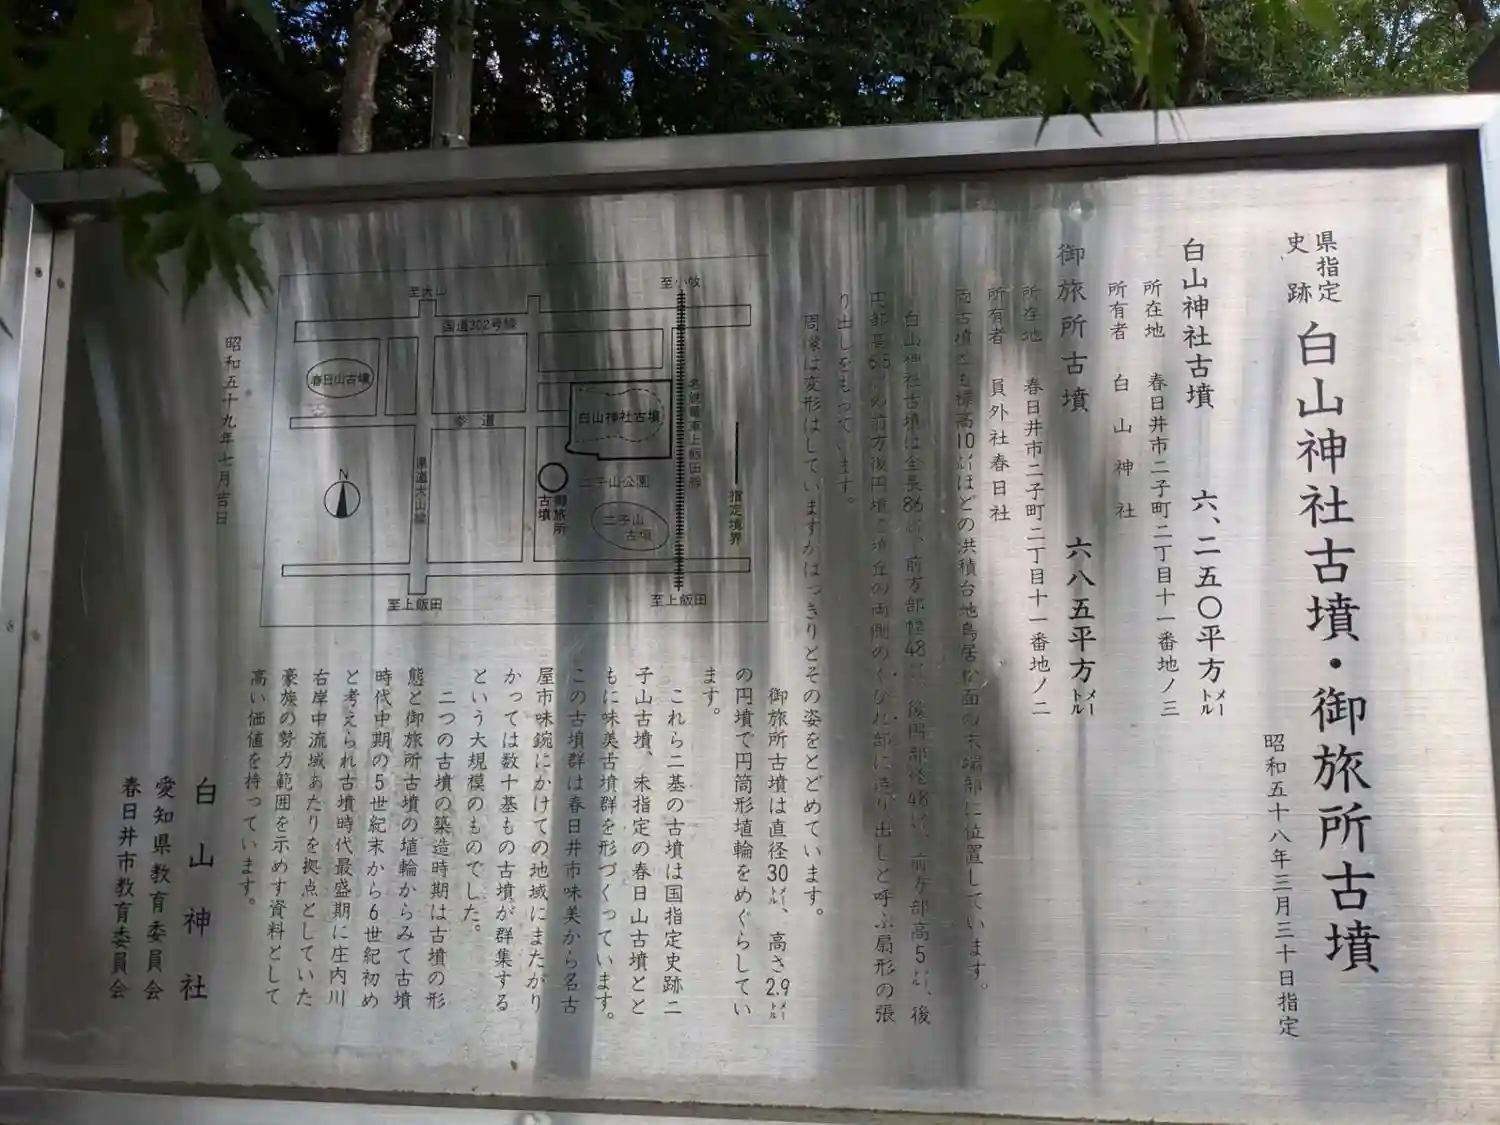 県指定
史跡
白山神社古墳・御旅所古墳
昭和五十八年三月三十日指定
白山神社古墳 六、二五〇平方メートル
所在地 春日井市二子町二丁目十一番地ノ三
所有者 白山神社
御旅所古墳 六八五平方メートル
所在地 春日井市二子町二丁目十一番地ノ二
所有者 員外社春日社
両古墳とも標高10メートルほどの洪積台地鳥居松面の末端部に位置しています。
白山神社古墳は全長86メートル、前方部幅48メートル、後円部径48メートル、前方部高5メートル、後
円部高6.5メートルの前方後円墳で墳丘の両側のくびれ部に造り出しと呼ぶ扇形の張
り出しをもっています。
周濠は変形はしていますがはっきりとその姿をとどめています。
御旅所古墳は直径30メートル、高さ2.9メートル
の円墳で円筒形埴輪をめぐらしてい
ます。
これら二基の古墳は国指定史跡二
子山古墳、未指定の春日山古墳とと
もに味美古墳群を形づくっています。
この古墳群は春日井市味美から名古
屋市味鋺にかけての地域にまたがり
かつては数十基もの古墳が群集する
という大規模のものでした。
二つの古墳の築造時期は古墳の形
態と御旅所古墳の埴輪からみて古墳
時代中期の5世紀末から6世紀初め
と考えられ古墳時代最盛期に庄内川
右岸中流域あたりを拠点としていた
豪族の勢力範囲を示めす資料として
高い価値を持っています。
至犬山
至小牧
国道302号線
春日山古墳
白山神社古墳
名鉄電車上飯田線
参道
県道犬山線
N
二子山公園
御旅所
古墳
二子山
古墳
指定境界
至上飯田
至上飯田
昭和五十九年七月吉日
白山神社
愛知県教育委員会
春日井市教育委員会